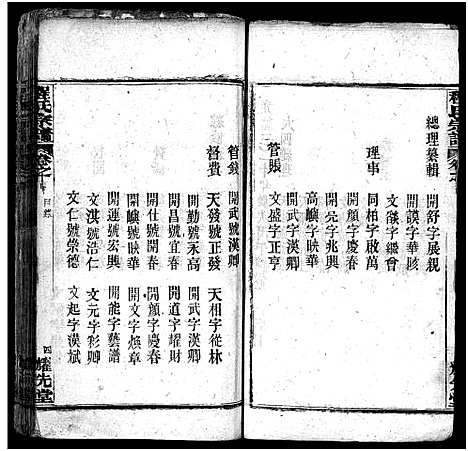 程氏宗譜
總理纂輯
開舒字展親
開謨字華賅
文徽字纘會
理事
同柏字啟萬
開顏字慶春
開亮字兆興
高嶐字映華
管賬
開武字漢卿
文盛字正亨
管錢
開武號漢卿
督費
天發號正發
天相字從林
開勤號永高
開武字漢卿
開昌號宜春
開道字耀財
開仕號開春
開顏字慶春
高嶐號映華
開文字煥章
開運號宏興
開能字藝譜
文淇號浩仁
文元字彩卿
文仁號崇德
文起字漢斌
程氏宗譜
卷之
目錄
四
耀先堂